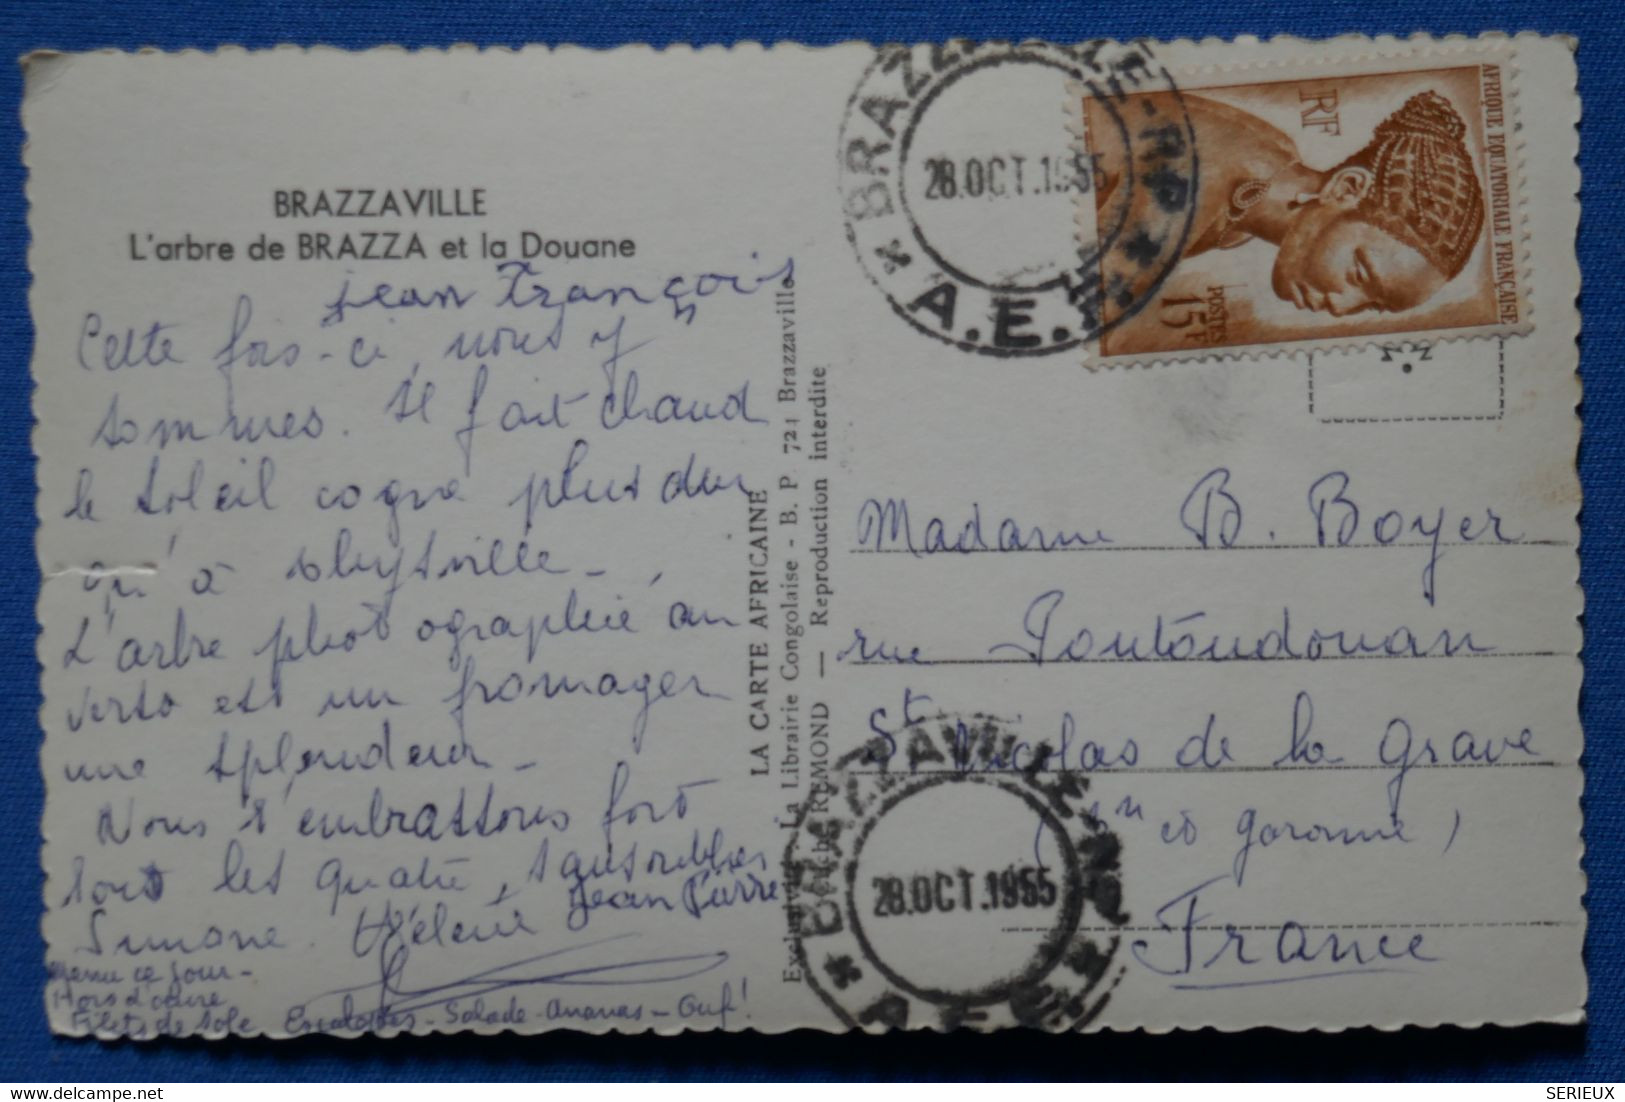 BRAZZAVILLE
L'arbre de BRAZZA et la Douane
jean François
Cette fois-ci, nous y
sommes. Il fait chaud
le soleil cogne plus dur
qu'à
L'arbre photographié au
verso est un fromager
une splendeur -
Nous t'embrassons fort
tous les quatre,
Simone. Hélène Jean Pierre
Menu ce jour -
Hors d'œuvre
Filets de sole Escalopes - Salade - Ananas - Ouf!
LA CARTE AFRICAINE
Exclusivité La Librairie Congolaise - B. P. 721 Brazzaville
REMOND — Reproduction interdite
BRAZZAVILLE-RP
28.OCT.1955
A.E.F.
AFRIQUE EQUATORIALE FRANÇAISE
RF
POSTES
15F
Madame B. Boyer
rue Poutoudouan
St Nicolas de la Grave
(Tn et Garonne)
France
BRAZZAVILLE-RP
28.OCT.1955
A.E.F.
SERIEUX